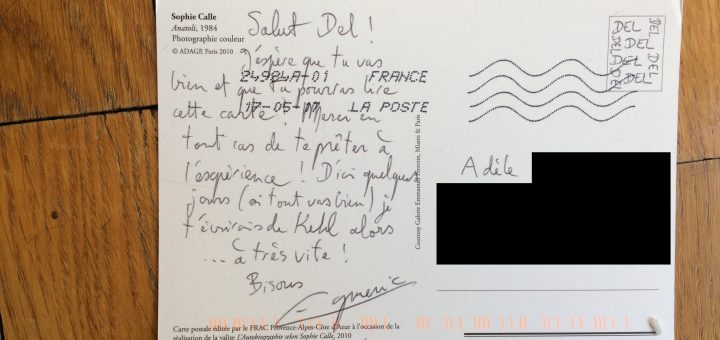 Sophie Calle
Anatoli, 1984
Photographie couleur
© ADAGP, Paris 2010
Salut Del !
J'espère que tu vas
bien et que tu pourras lire
cette carte ! Merci en
tout cas de te prêter à
l'expérience ! D'ici quelques
jours (si tout va bien) je
t'écrirais de Kehl alors
... à très vite !
Bisous
24984A-01 FRANCE
17-05-17 LA POSTE
DEL DEL
DEL DEL
DEL DEL
Courtesy Galerie Emmanuel Perrotin, Miami & Paris
Adèle
Carte postale éditée par le FRAC Provence-Alpes-Côte d'Azur à l'occasion de la
réalisation de la valise L'Autobiographie selon Sophie Calle, 2010